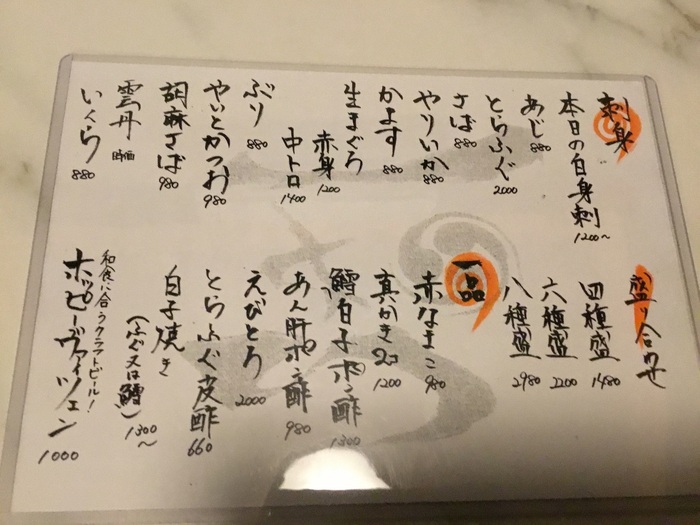 刺身
本日の白身刺 1200〜
あじ 880
とらふぐ 2000
さば 880
やりいか 880
かます 880
生まぐろ
赤身 1200
中トロ 1400
ぶり 880
やいとかつお 980
胡麻さば 980
雲丹 時価
いくら 880
盛り合わせ
四種盛 1480
六種盛 2200
八種盛 2980
一品
赤なまこ 980
真かき2コ 1200
鱈白子ポン酢 1300
あん肝ポン酢 980
えびとろ 2000
とらふぐ皮酢 660
白子焼き
(ふぐ又は鱈) 1300〜
和食に合うクラフトビール!
ホッピーヴァイツェン 1000